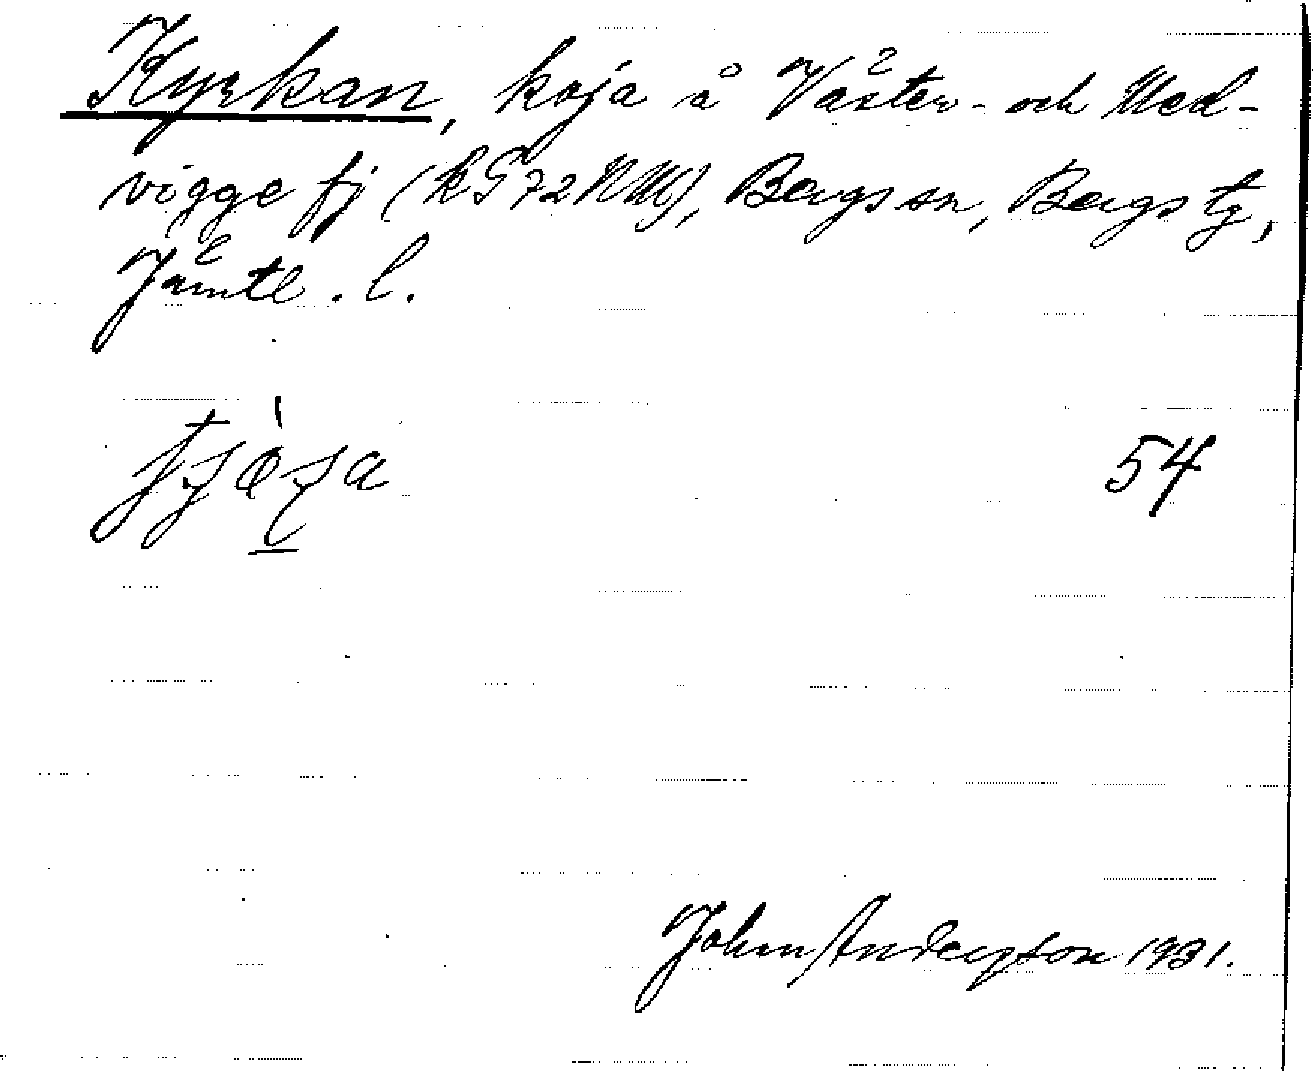 Kyrkan, koja å Väster- och Med-
vigge fj (kG72NM), Bergs sn, Bergs tg,
Jämtl. l.
54
John Anderson 1931.